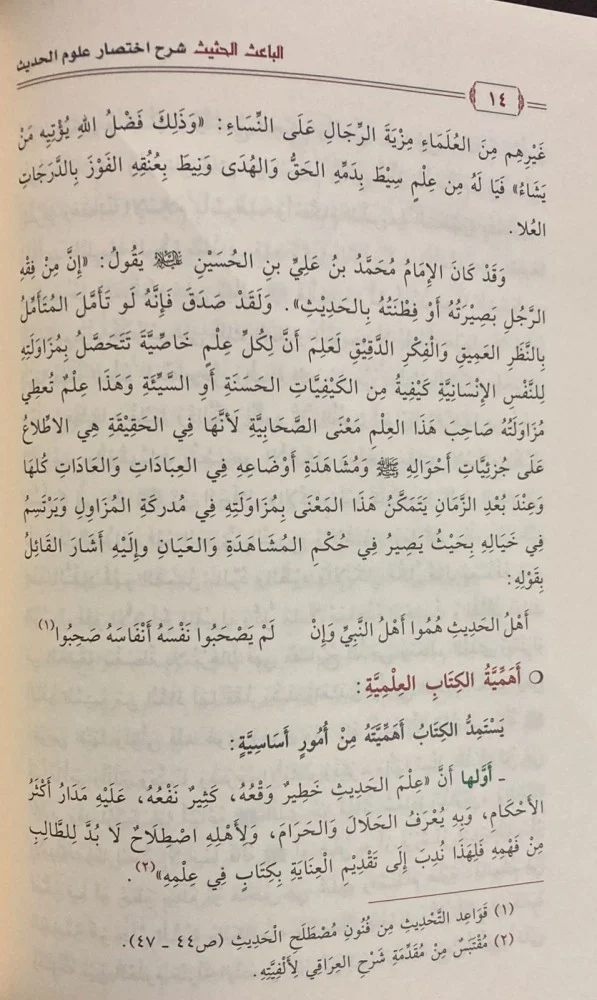 الباعث الحثيث شرح اختصار علوم الحديث
١٤
غَيْرِهِم مِنَ العُلَمَاءِ مِزْيَةَ الرِّجَالِ عَلَى النِّسَاءِ: «وَذَلِكَ فَضْلُ اللهِ يُؤْتِيهِ مَنْ
يَشَاءُ» فَيَا لَهُ مِن عِلْمٍ سِيْطَ بِدَمِّهِ الحَقُّ وَالهُدَى وَنِيطَ بِعُنُقِهِ الفَوْزَ بِالدَّرَجَاتِ
العُلَا.
وَقَدْ كَانَ الإِمَامُ مُحَمَّدُ بنُ عَلِيِّ بنِ الحُسَيْنِ عَلَيْهِ السَّلَامُ يَقُولُ: «إِنَّ مِنْ فِقْهِ
الرَّجُلِ بَصِيرَتُهُ أَوْ فِطْنَتُهُ بِالحَدِيْثِ». وَلَقَدْ صَدَقَ فَإِنَّهُ لَو تَأَمَّلَ المُتَأَمِّلُ
بِالنَّظَرِ العَمِيقِ وَالْفِكْرِ الدَّقِيْقِ لَعَلِمَ أَنَّ لِكُلِّ عِلْمٍ خَاصِّيَّةً تَتَحَصَّلُ بِمُزَاوَلَتِهِ
لِلنَّفْسِ الإِنْسَانِيَّةِ كَيْفِيَةً مِن الكَيْفِيَاتِ الحَسَنَةِ أَوِ السَّيِّئَةِ وَهَذَا عِلْمٌ تُعطِي
مُزَاوَلَتُهُ صَاحِبَ هَذَا العِلْمِ مَعْنَى الصَّحَابِيَّةِ لأَنَّهَا فِي الحَقِيْقَةِ هِي الاطِّلاعُ
عَلَى جُزئِيَّاتِ أَحْوَالِهِ ﷺ وَمُشَاهَدَةِ أَوْضَاعِهِ فِي العِبَادَاتِ وَالعَادَاتِ كُلِّهَا
وَعِنْدَ بُعْدِ الزَّمَانِ يَتَمَكَّنُ هَذَا المَعْنَى بِمُزَاوَلَتِهِ فِي مُدرَكَةِ المُزَاوِلِ وَيَرْتَسِمُ
فِي خَيَالِهِ بِحَيْثُ يَصِيرُ فِي حُكْمِ المُشَاهَدَةِ وَالعَيَانِ وإِلَيْهِ أَشَارَ القَائِلُ
بِقَوْلِهِ:
أَهْلُ الحَدِيْثِ هُمُوا أَهْلُ النَّبِيِّ وَإِنْ لَمْ يَصْحَبُوا نَفْسَهُ أَنْفَاسَهُ صَحِبُوا(١)
أَهَمِّيَّةُ الكِتَابِ العِلْمِيَّةِ:
يَسْتَمِدُّ الكِتَابُ أَهَمِّيَّتَهُ مِنْ أُمُورٍ أَسَاسِيَّةٍ:
ـ أَوَّلها أَنَّ «عِلْمَ الحَدِيْثِ خَطِيرٌ وَقْعُهُ، كَثِيْرٌ نَفْعُهُ، عَلَيْهِ مَدَارُ أَكْثَرُ
الأَحْكَامِ، وَبِهِ يُعْرَفُ الحَلَالَ وَالحَرَامَ، وَلِأَهْلِهِ اصْطِلَاحٌ لَا بُدَّ لِلطَّالِبِ
مِنْ فَهْمِهِ فَلِهَذَا نُدِبَ إِلَى تَقْدِيْمِ العِنَايَةِ بِكِتَابٍ فِي عِلْمِهِ»(٢).
(١) قَوَاعِد التَّحْدِيْثِ مِن فُنُونِ مُصْطَلَحِ الْحَدِيْثِ (ص٤٤ ـ ٤٧).
(٢) مُقْتَبَسٌ مِنْ مُقَدِّمَةِ شَرْحِ العِرَاقِي لِأَلْفِيَّتِهِ.